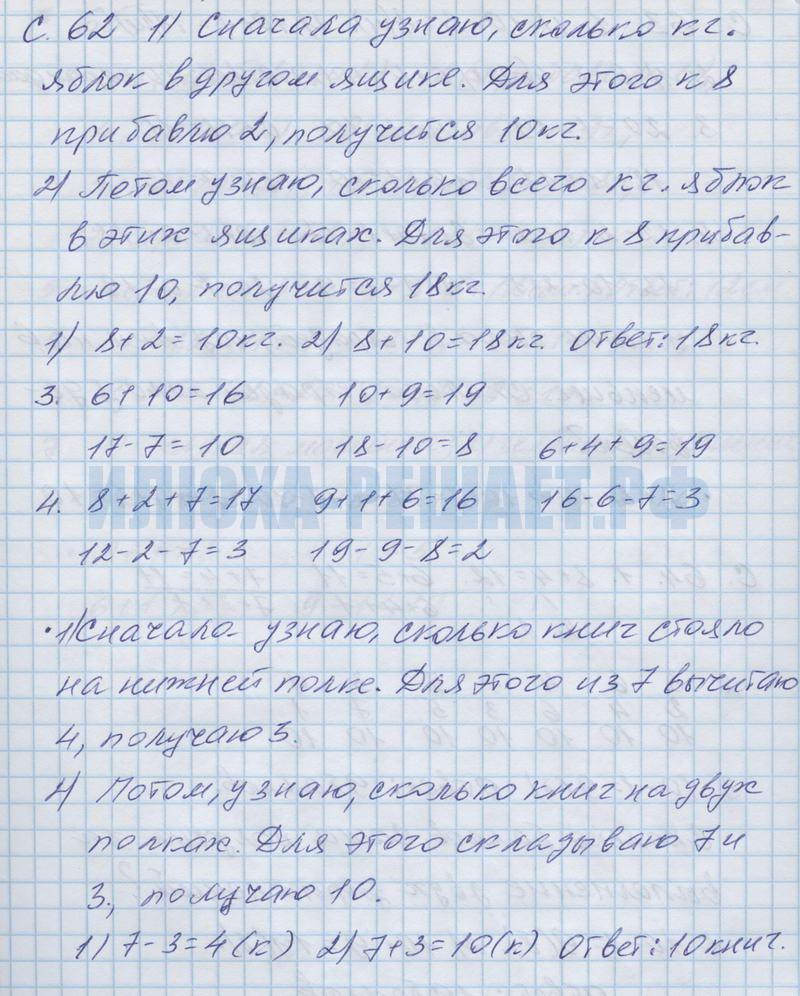 С. 62 1) Сначала узнаю, сколько кг.
яблок в другом ящике. Для этого к 8
прибавлю 2, получится 10кг.
2) Потом узнаю, сколько всего кг. яблок
в этих ящиках. Для этого к 8 прибав-
лю 10, получится 18кг.
1) 8+2=10кг. 2) 8+10=18кг. Ответ: 18кг.
3. 6+10=16 10+9=19
17-7=10 18-10=8 6+4+9=19
ИЛЮХА-РЕШАЕТ.РФ
4. 8+2+7=17 9+1+6=16 16-6-7=3
12-2-7=3 19-9-8=2
1) Сначала узнаю, сколько книг стояло
на нижней полке. Для этого из 7 вычитаю
4, получаю 3.
2) Потом, узнаю, сколько книг на двух
полках. Для этого складываю 7 и
3, получаю 10.
1) 7-3=4(к) 2) 7+3=10(к) Ответ: 10 книг.